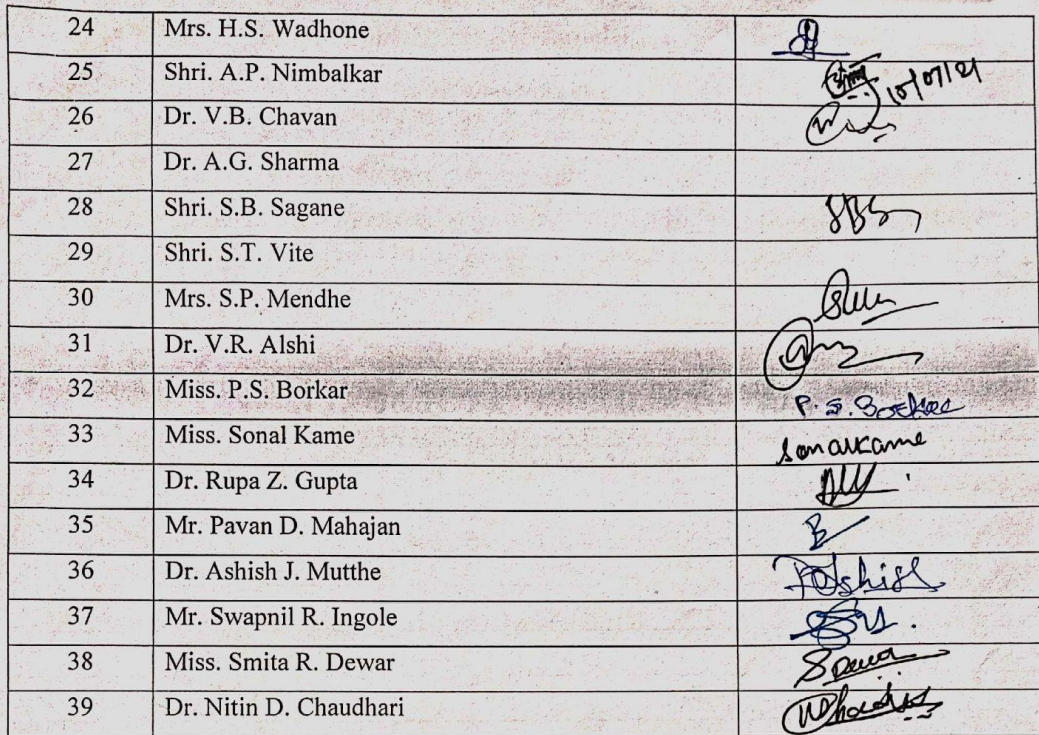 24 Mrs. H.S. Wadhone
25 Shri. A.P. Nimbalkar 10/07/21
26 Dr. V.B. Chavan
27 Dr. A.G. Sharma
28 Shri. S.B. Sagane SBS
29 Shri. S.T. Vite
30 Mrs. S.P. Mendhe
31 Dr. V.R. Alshi
32 Miss. P.S. Borkar P.S.Borkar
33 Miss. Sonal Kame Sonal Kame
34 Dr. Rupa Z. Gupta
35 Mr. Pavan D. Mahajan
36 Dr. Ashish J. Mutthe
37 Mr. Swapnil R. Ingole
38 Miss. Smita R. Dewar
39 Dr. Nitin D. Chaudhari